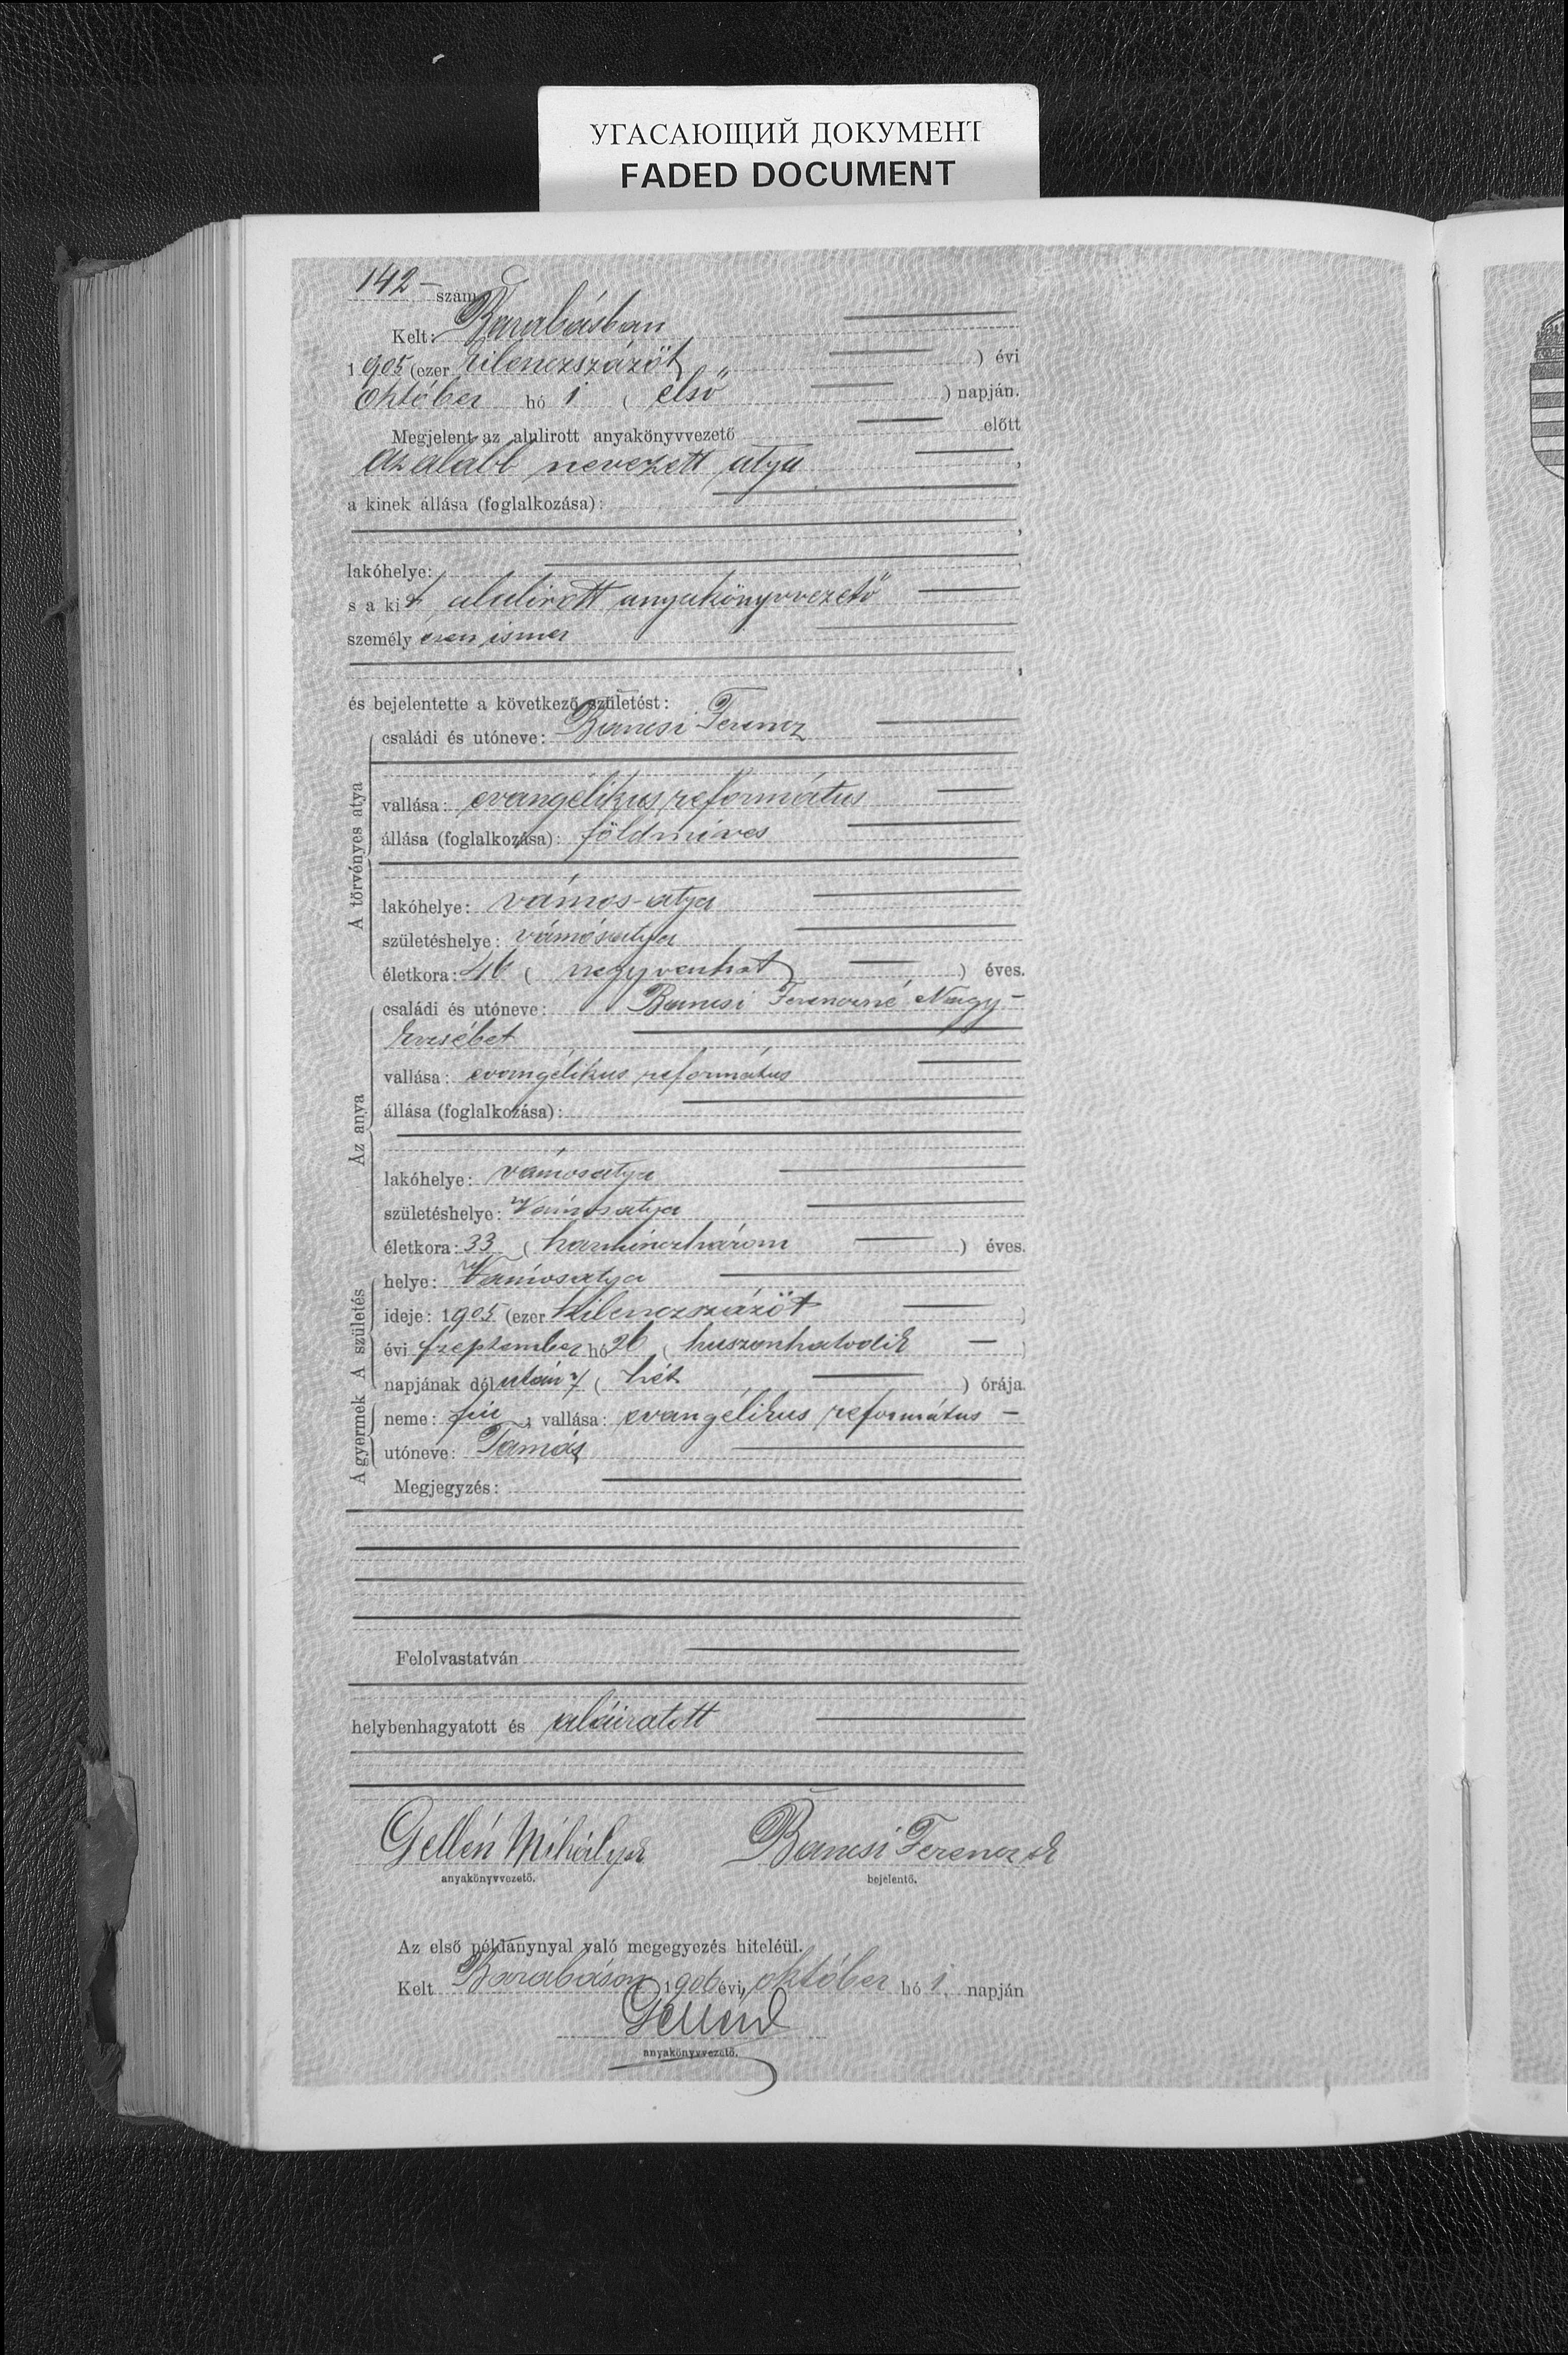 УГАСАЮЩИЙ ДОКУМЕНТ
FADED DOCUMENT
142 – szám
Kelt: Barabásban
1905 (ezer kilenczszázöt ) évi
október hó 1 ( első ) napján.
Megjelent az alulirott anyakönyvvezető előtt
az alább nevezett atya ,
a kinek állása (foglalkozása):
,
lakóhelye: ,
s a kit alulirott anyakönyvvezető
személyesen ismer
,
és bejelentette a következő születést:
A törvényes atya
családi és utóneve: Bancsi Ferencz
vallása: evangélikus református
állása (foglalkozása): földmíves
lakóhelye: vámos-atya
születéshelye: vámosatya
életkora: 46 ( negyvenhat ) éves.
Az anya
családi és utóneve: Bancsi Ferenczné Nagy-
Erzsébet
vallása: evangélikus református
állása (foglalkozása):
lakóhelye: vámosatya
születéshelye: Vámosatya
életkora: 33 ( harminczhárom ) éves.
A születés
helye: Vámosatya
ideje: 1905 (ezer kilenczszázöt )
évi szeptember hó 26 ( huszonhatodik – )
napjának délután 7 ( hét ) órája.
A gyermek
neme: fiú ; vallása: evangélikus református –
utóneve: Tamás
Megjegyzés:
Felolvastatván
helybenhagyatott és aláiratott
Gellén Mihály sk Bancsi Ferencz sk
anyakönyvvezető. bejelentő.
Az első példánynyal való megegyezés hiteléül.
Kelt Barabáson 1906 évi, október hó 1. napján
Gellén
anyakönyvvezető.